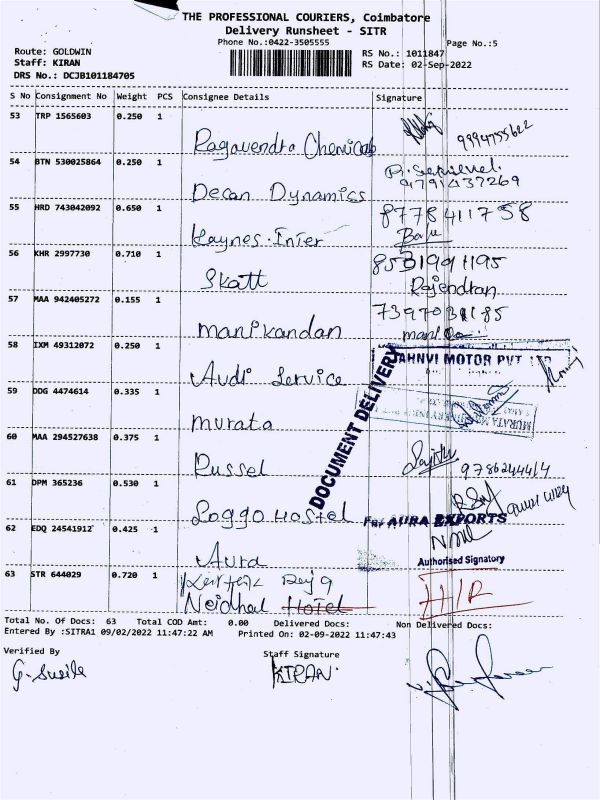 THE PROFESSIONAL COURIERS, Coimbatore
Delivery Runsheet - SITR
Phone No.:0422-3505555
Page No.:5
Route: GOLDWIN
RS No.: 1011847
Staff: KIRAN
RS Date: 02-Sep-2022
DRS No.: DCJB101184705
S No Consignment No Weight PCS Consignee Details Signature
53 TRP 1565603 0.250 1
Ragavendra Chemicals 9994755622
54 BTN 530025864 0.250 1
Decan Dynamics 9791437269
55 HRD 743042092 0.650 1 8778411758
Kaynes-Inter Babu
56 KHR 2997730 0.710 1 8531991195
Skatt Rajendran
57 MAA 942405272 0.155 1 7397031185
manikandan mani
58 IXM 49312072 0.250 1 JAHNVI MOTOR PVT LTD
Audi Service
DOCUMENT DELIVERY
59 DDG 4474614 0.335 1
murata MURATA
60 MAA 294527638 0.375 1
Russel 9786244414
61 DPM 365236 0.530 1
Loggo Hostel For AURA EXPORTS
62 EDQ 24541912 0.425 1
Aura Authorised Signatory
63 STR 644029 0.720 1
Neidhal Hotel
Total No. Of Docs: 63 Total COD Amt: 0.00 Delivered Docs: Non Delivered Docs:
Entered By :SITRA1 09/02/2022 11:47:22 AM Printed On: 02-09-2022 11:47:43
Verified By Staff Signature
G. Susila KIRAN